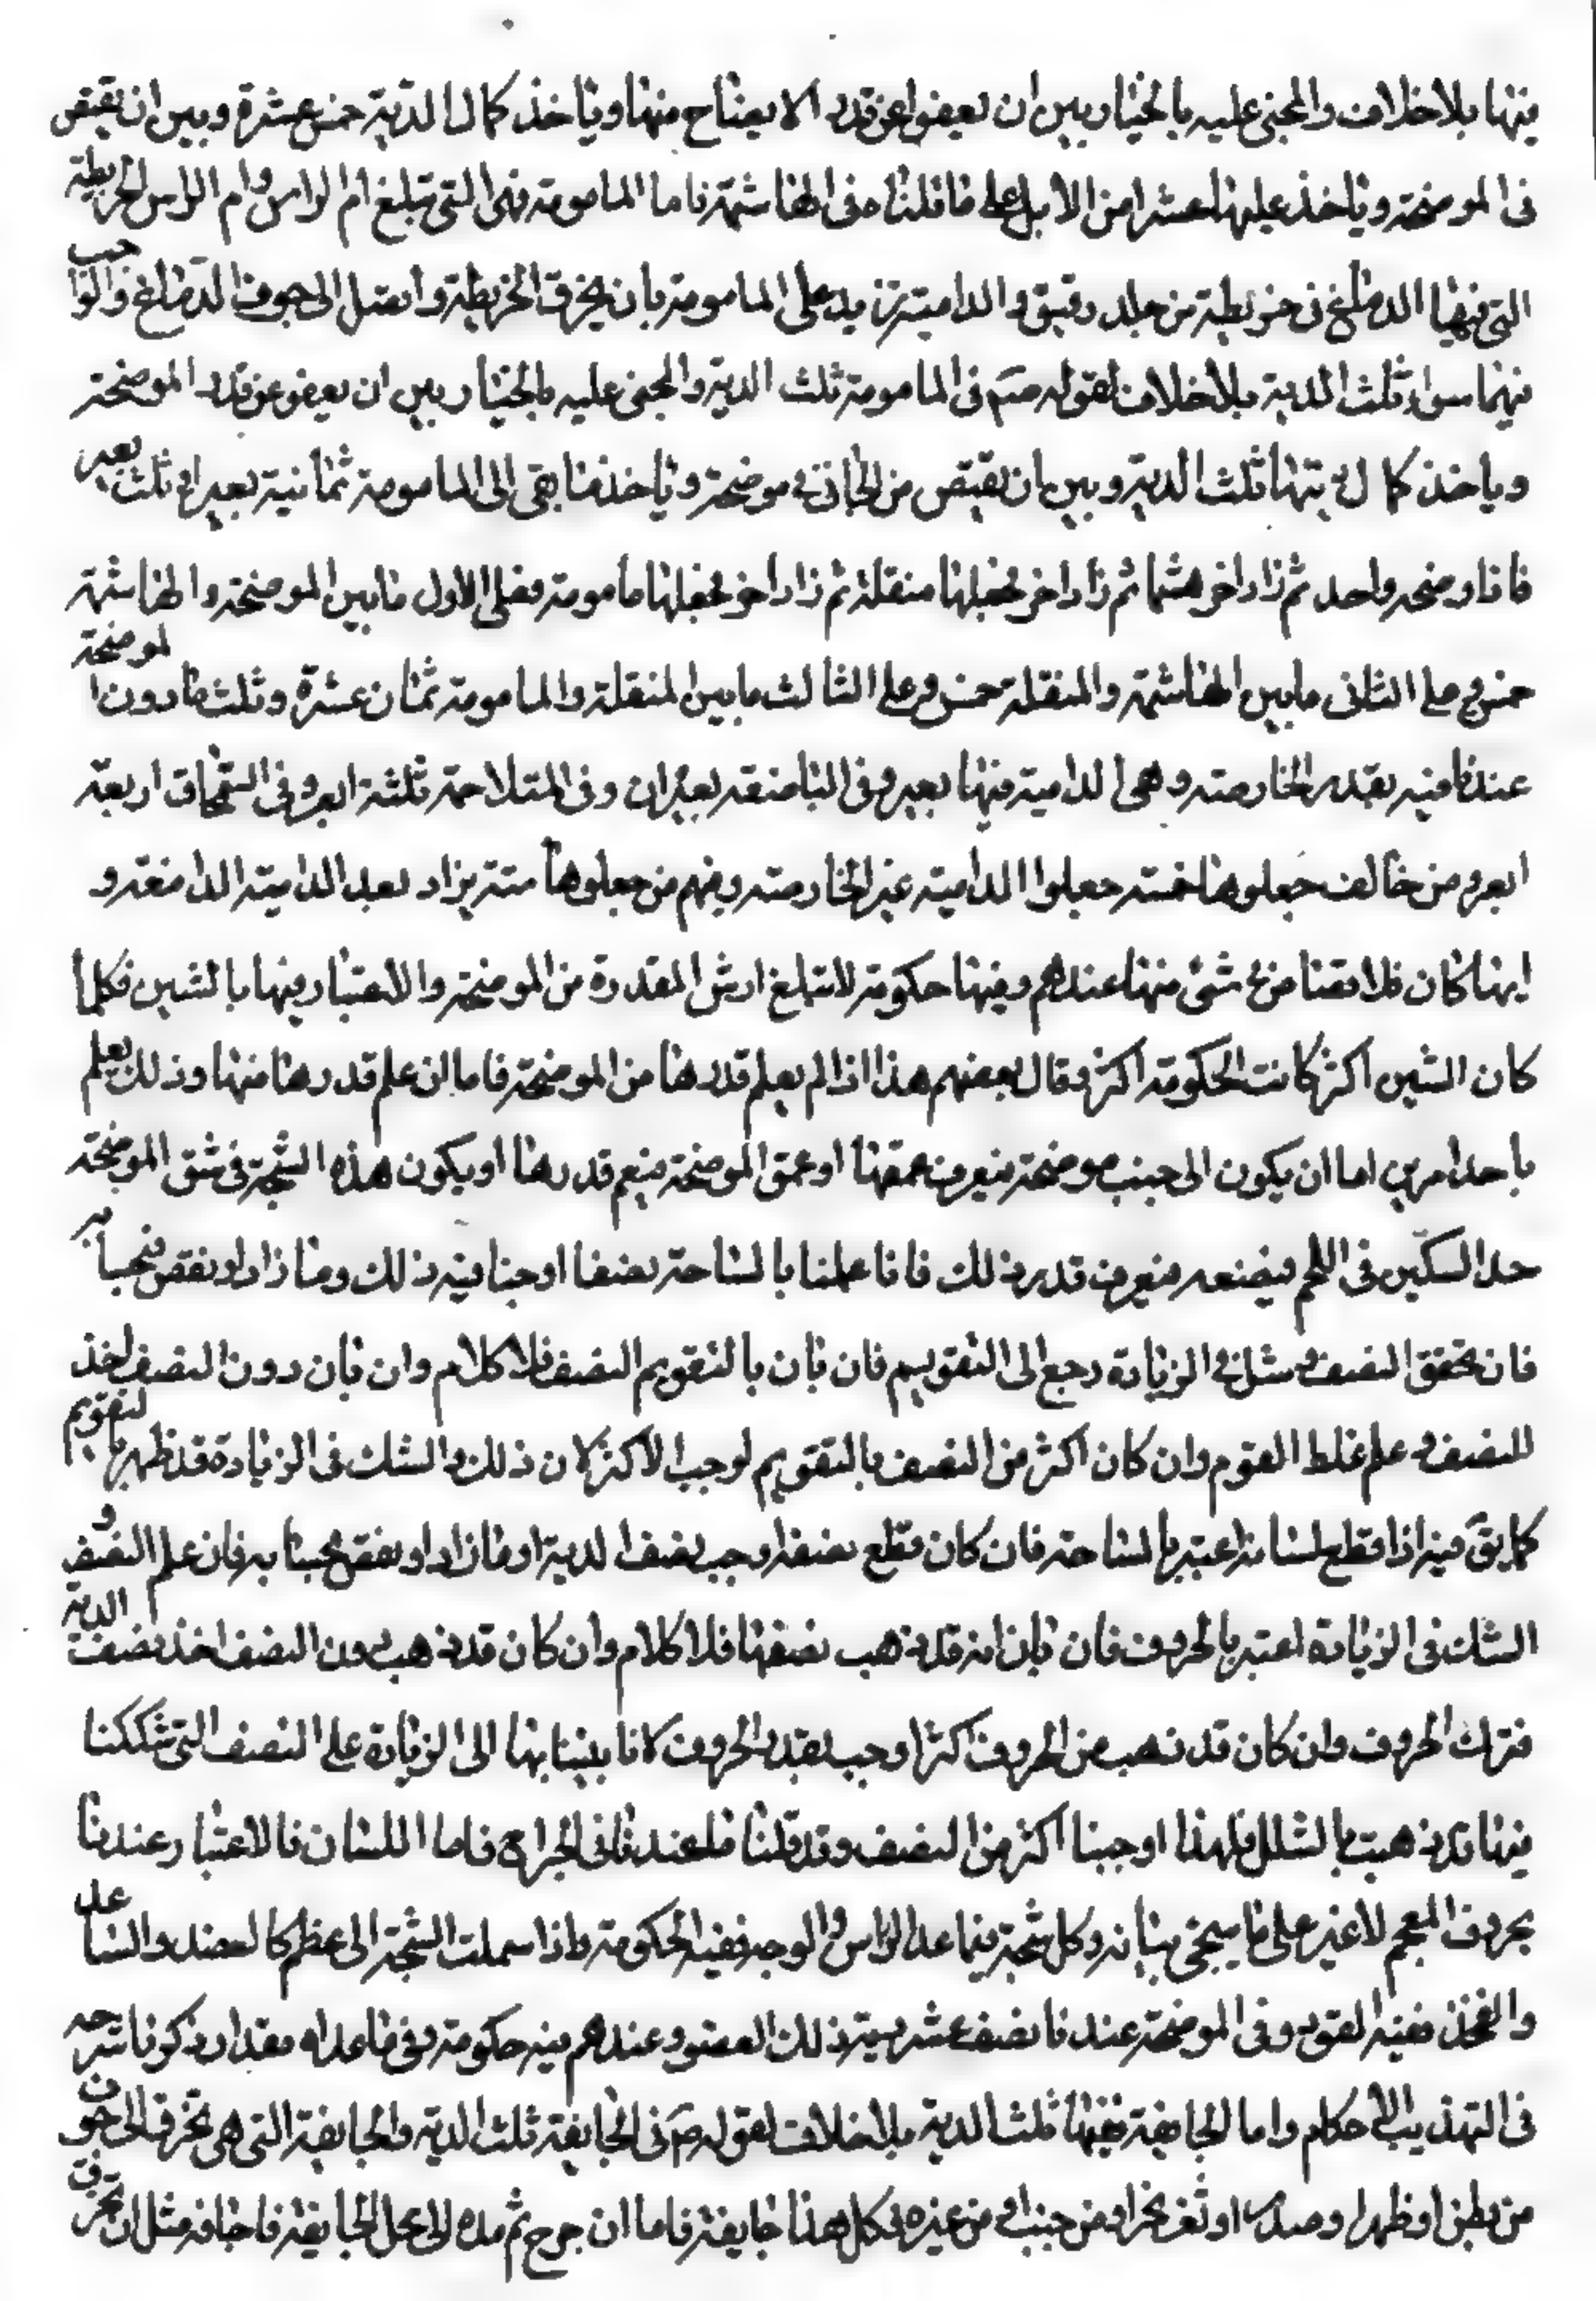 فيها بلا خلاف والمجنى عليه بالخيار بين ان يعفو عن قدر الايضاح منها وياخذ كمال الدية خمس عشرة وبين ان يقتص
فى الموضحة وياخذ عليها عشرا من الابل على ما قلناه فى الهاشمة فاما المامومة فهى التى تبلغ ام الراس وام الراس الخريطة
التى فيها الدماغ فى خريطة من جلد رقيق والدامية تزيد على المامومة بان يخرق الخريطة واتصل الى جوف الدماغ والواجب
فيهما سواء ثلث الدية بلا خلاف لقوله صم فى المامومة ثلث الدية والمجنى عليه بالخيار بين ان يعفو عن قدر الموضحة
وياخذ كمال ديتها ثلث الدية وبين ان يقتص من الجانى موضحة وياخذ ما بقى الى المامومة ثمانية بعيرا وثلث بعير
فاذا اوضحه واحد ثم زاد اخر هشما ثم زاد اخر فجعلها منقلة ثم زاد اخر فجعلها مامومة فعلى الاول ما بين الموضحة والهاشمة
خمس وعلى الثانى مابين الهاشمة والمنقلة خمس وعلى الثالث مابين المنقلة والمامومة ثمان عشرة وثلث ما دون الموضحة
عندنا فيه مقدر الخارصة وهى الدامية فيها بعير وفى الباضعة بعيران وفى المتلاحمة ثلثة ابعر وفى السمحاق اربعة
ابعر ومن خالف جعلوها خمسة جعلوا الدامية غير الخارصة ومنهم من جعلوها ستة يزاد بعد الدامية الدامغة و
ايها كان فلا قصاص فى شئ منها عندهم وفيها حكومة لا تبلغ ارش المقدرة من الموضحة والاعتبار فيها بالشين فكلما
كان الشين اكثر كانت الحكومة اكثر وقال بعضهم هذا اذا لم يعلم قدرها من الموضحة فاما ان علم قدرها منها وذلك يعلم
باحد امرين اما ان يكون الى جنب موضحة فيعرف عمقها او عمق الموضحة فيعم قدرها او يكون هذه الشجة فى شق الموضحة
حد السكين فى اللحم فيضعه فيعرف قدر ذلك فاذا علمنا بالمساحة نصفا اوجبنا فيه ذلك وما زاد او نقص فبحسابه
فان تحقق النصف وشك فى الزيادة رجع الى التقويم فان بان بالتقويم النصف فلا كلام وان بان دون النصف اخذ
النصف وعلم غلط المقوم وان كان اكثر من النصف بالتقويم لوجب الاكثر لان ذلك والشك فى الزيادة قد ظهر بالتقويم
كما بق فيه اذا قطع لسانه اعتبر بالمساحة فان كان قطع نصفه اوجب نصف الدية او ما زاد او نقص بحسابه فان علم النصف و
الشك فى الزيادة اعتبر بالحروف فان بان انه قد ذهب نصفها فلا كلام وان كان قد ذهب دون النصف اخذ نصف الدية
فترك الحروف وان كان قد ذهب من الحروف اكثر اوجب بقدر الحروف لانا بينا بها الى الزيادة على النصف التى شككنا
فيها قد ذهبت بالشلل فلهذا اوجبنا اكثر من النصف وقد قلنا ما عندنا فى الجراح فاما اللسان فالاعتبار عندنا
بحروف المعجم لا غير على ما سيجئ بيانه وكل شجة فيما عدا الراس والوجه ففيه الحكومة واذا وصلت الشجة الى عظم كالعضد والساعد
والفخذ ففيه القود وفى الموضحة عندنا نصف عشر دية ذلك العضو وعندهم فيه حكومة وفى ما عداه مقدار ذكرنا شرحه
فى التهذيب الاحكام واما الجايفة ففيها ثلث الدية بلا خلاف لقوله صم فى الجايفة ثلث الدية والجايفة التى هى تخرق الى جوف
من بطن او ظهر او صدر او ثغر نحر او من جنب او من غيره فكل هذا جايفة فاما ان جرح ثم مده الى محل الجايفة فاجافه مثل ان يخرق